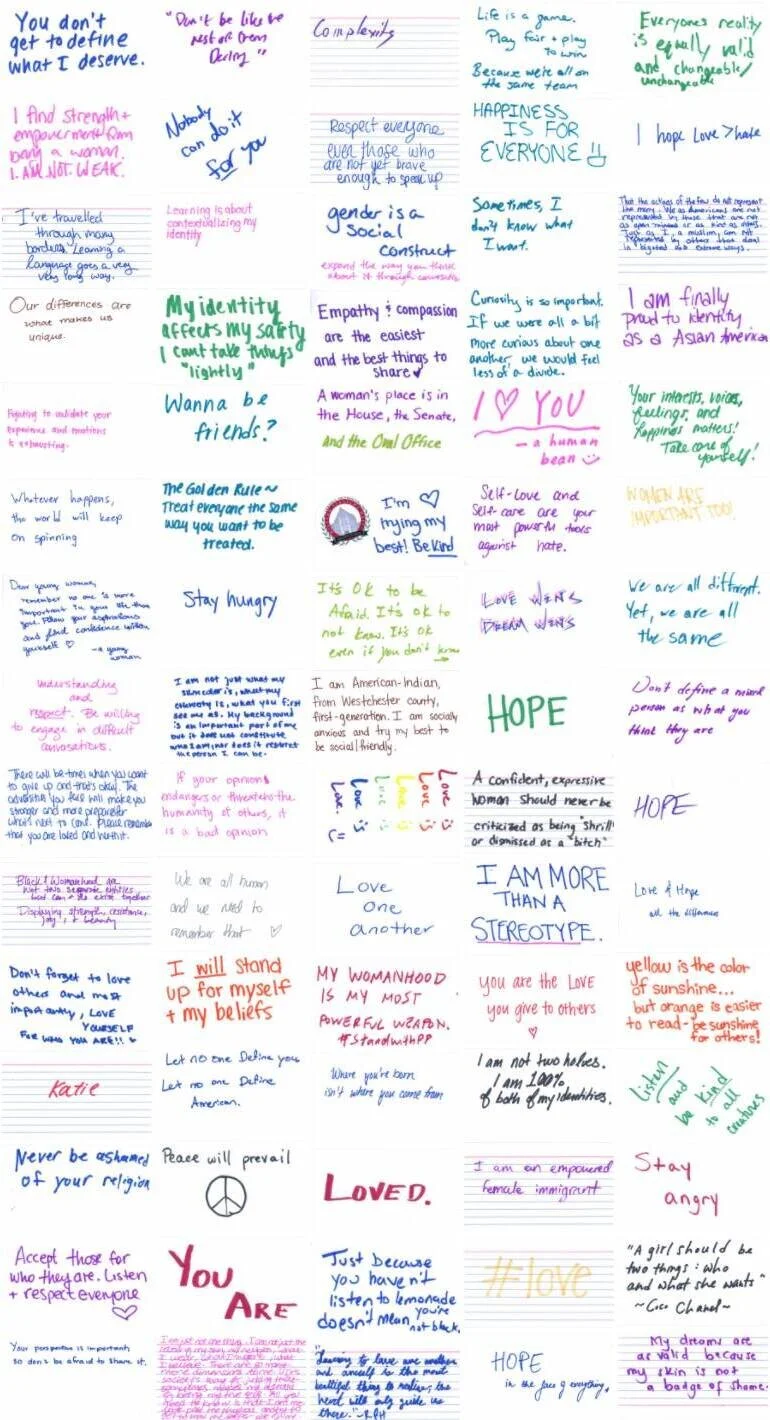 You don't
get to define
what I deserve.
"Don't be like the
rest of them
Darling"
Complexity
Life is a game.
Play fair + play
to win
Because we're all on
the same team
Everyones reality
is equally valid
and changeable/
unchangeable
I find strength +
empowerment from
being a woman.
I. AM. NOT. WEAK.
Nobody
can do it
for you
Respect everyone
even those who
are not yet brave
enough to speak up
HAPPINESS
IS FOR
EVERYONE
I hope Love > hate
I've travelled
through many
borders. Learning a
language goes a very
very long way.
Learning is about
contextualizing my
identity
gender is a
social
construct
expand the way you think
about it through
Sometimes, I
don't know what
I want.
That the actions of the few do not represent
the many. We as Americans are not
represented by those that are not
as open minded or as kind as others.
Just as I, a muslim, am not
represented by others that deal
in bigoted and extreme ways.
Our differences are
what makes us
unique.
My identity
affects my safty
I cant take things
"lightly"
Empathy & compassion
are the easiest
and the best things to
share
Curiosity is so important.
If we were all a bit
more curious about one
another, we would feel
less of a divide.
I am finally
proud to identity
as a Asian American
Fighting to validate your
experience and emotions
is exhausting.
Wanna be
friends?
A woman's place is in
the House, the Senate,
And the Oval Office
I ♡ YOU
- a human
bean
Your interests, voices,
feelings, and
happiness matters!
Take care of
yourself!
Whatever happens,
the world will keep
on spinning
The Golden Rule ~
Treat everyone the same
way you want to be
treated.
I'm ♡
trying my
best! Be kind
Self-Love and
Self-care are your
most powerful tools
against hate.
WOMEN ARE
IMPORTANT TOO!
Dear young woman,
remember no one is more
important in your life than
you. Follow your aspirations
and find confidence within
yourself ♡
- a young
woman
Stay hungry
It's OK to be
Afraid. It's ok to
not know. It's ok
even if you don't know
LOVE WINS
DREAM WINS
We are all different.
Yet, we are all
the same
understanding
and
respect. Be willing
to engage in difficult
conversations.
I am not just what my
gender is, what my
ethnicity is, what you first
see me as. My background
is an important part of me
but it does not constitute
who I am, nor does it restrict
the person I can be.
I am American-Indian,
from Westchester county,
first-generation. I am socially
anxious and try my best to
be social/friendly.
HOPE
Don't define a mixed
person as what you
think they are
There will be times when you want
to give up and that's okay. The
adversities you face will make you
stronger and more prepared for
what's next to come. Please remember
that you are loved and worth it.
If your opinions
endangers or threatens the
humanity of others, it
is a bad opinion
Love is
Love is
Love is
Love is
Love is
Love. (=
A confident, expressive
woman should never be
criticized as being "shrill"
or dismissed as a "bitch"
HOPE
Black & Womanhood are
not two separate entities
but can & do exist together
Displaying strength, resistance,
joy, & beauty
We are all human
and we need to
remember that ♡
Love
one
another
I AM MORE
THAN A
STEREOTYPE.
Love & Hope
all the difference
Don't forget to love
others and most
importantly, LOVE
YOURSELF
FOR WHO YOU ARE!! ♡
I will stand
up for myself
+ my beliefs
MY WOMANHOOD
IS MY MOST
POWERFUL WEAPON.
#StandwithPP
you are the LOVE
you give to others
♡
yellow is the color
of sunshine...
but orange is easier
to read - be sunshine
for others!
Katie
Let no one Define you.
Let no one Define
American.
Where you're born
isn't where you came from
I am not two halves.
I am 100%
of both of my identities.
Listen
and
be kind
to all
creatures
Never be ashamed
of your religion
Peace will prevail
LOVED.
I am an empowered
female immigrant
Stay
angry
Accept those for
who they are. Listen
+ respect everyone
♡
YOU
ARE
Just because
you haven't
listen to lemonade
doesn't mean you're
not black.
#love
"A girl should be
two things: who
and what she wants"
~ Coco Chanel ~
Your perspective is important,
so don't be afraid to share it.
"Learning to love one another
and oneself is the most
beautiful thing to realize, the
herd will only guide us
there." - RPH
HOPE
in the face of everything.
My dreams are
as valid because
my skin is not
a badge of shame.